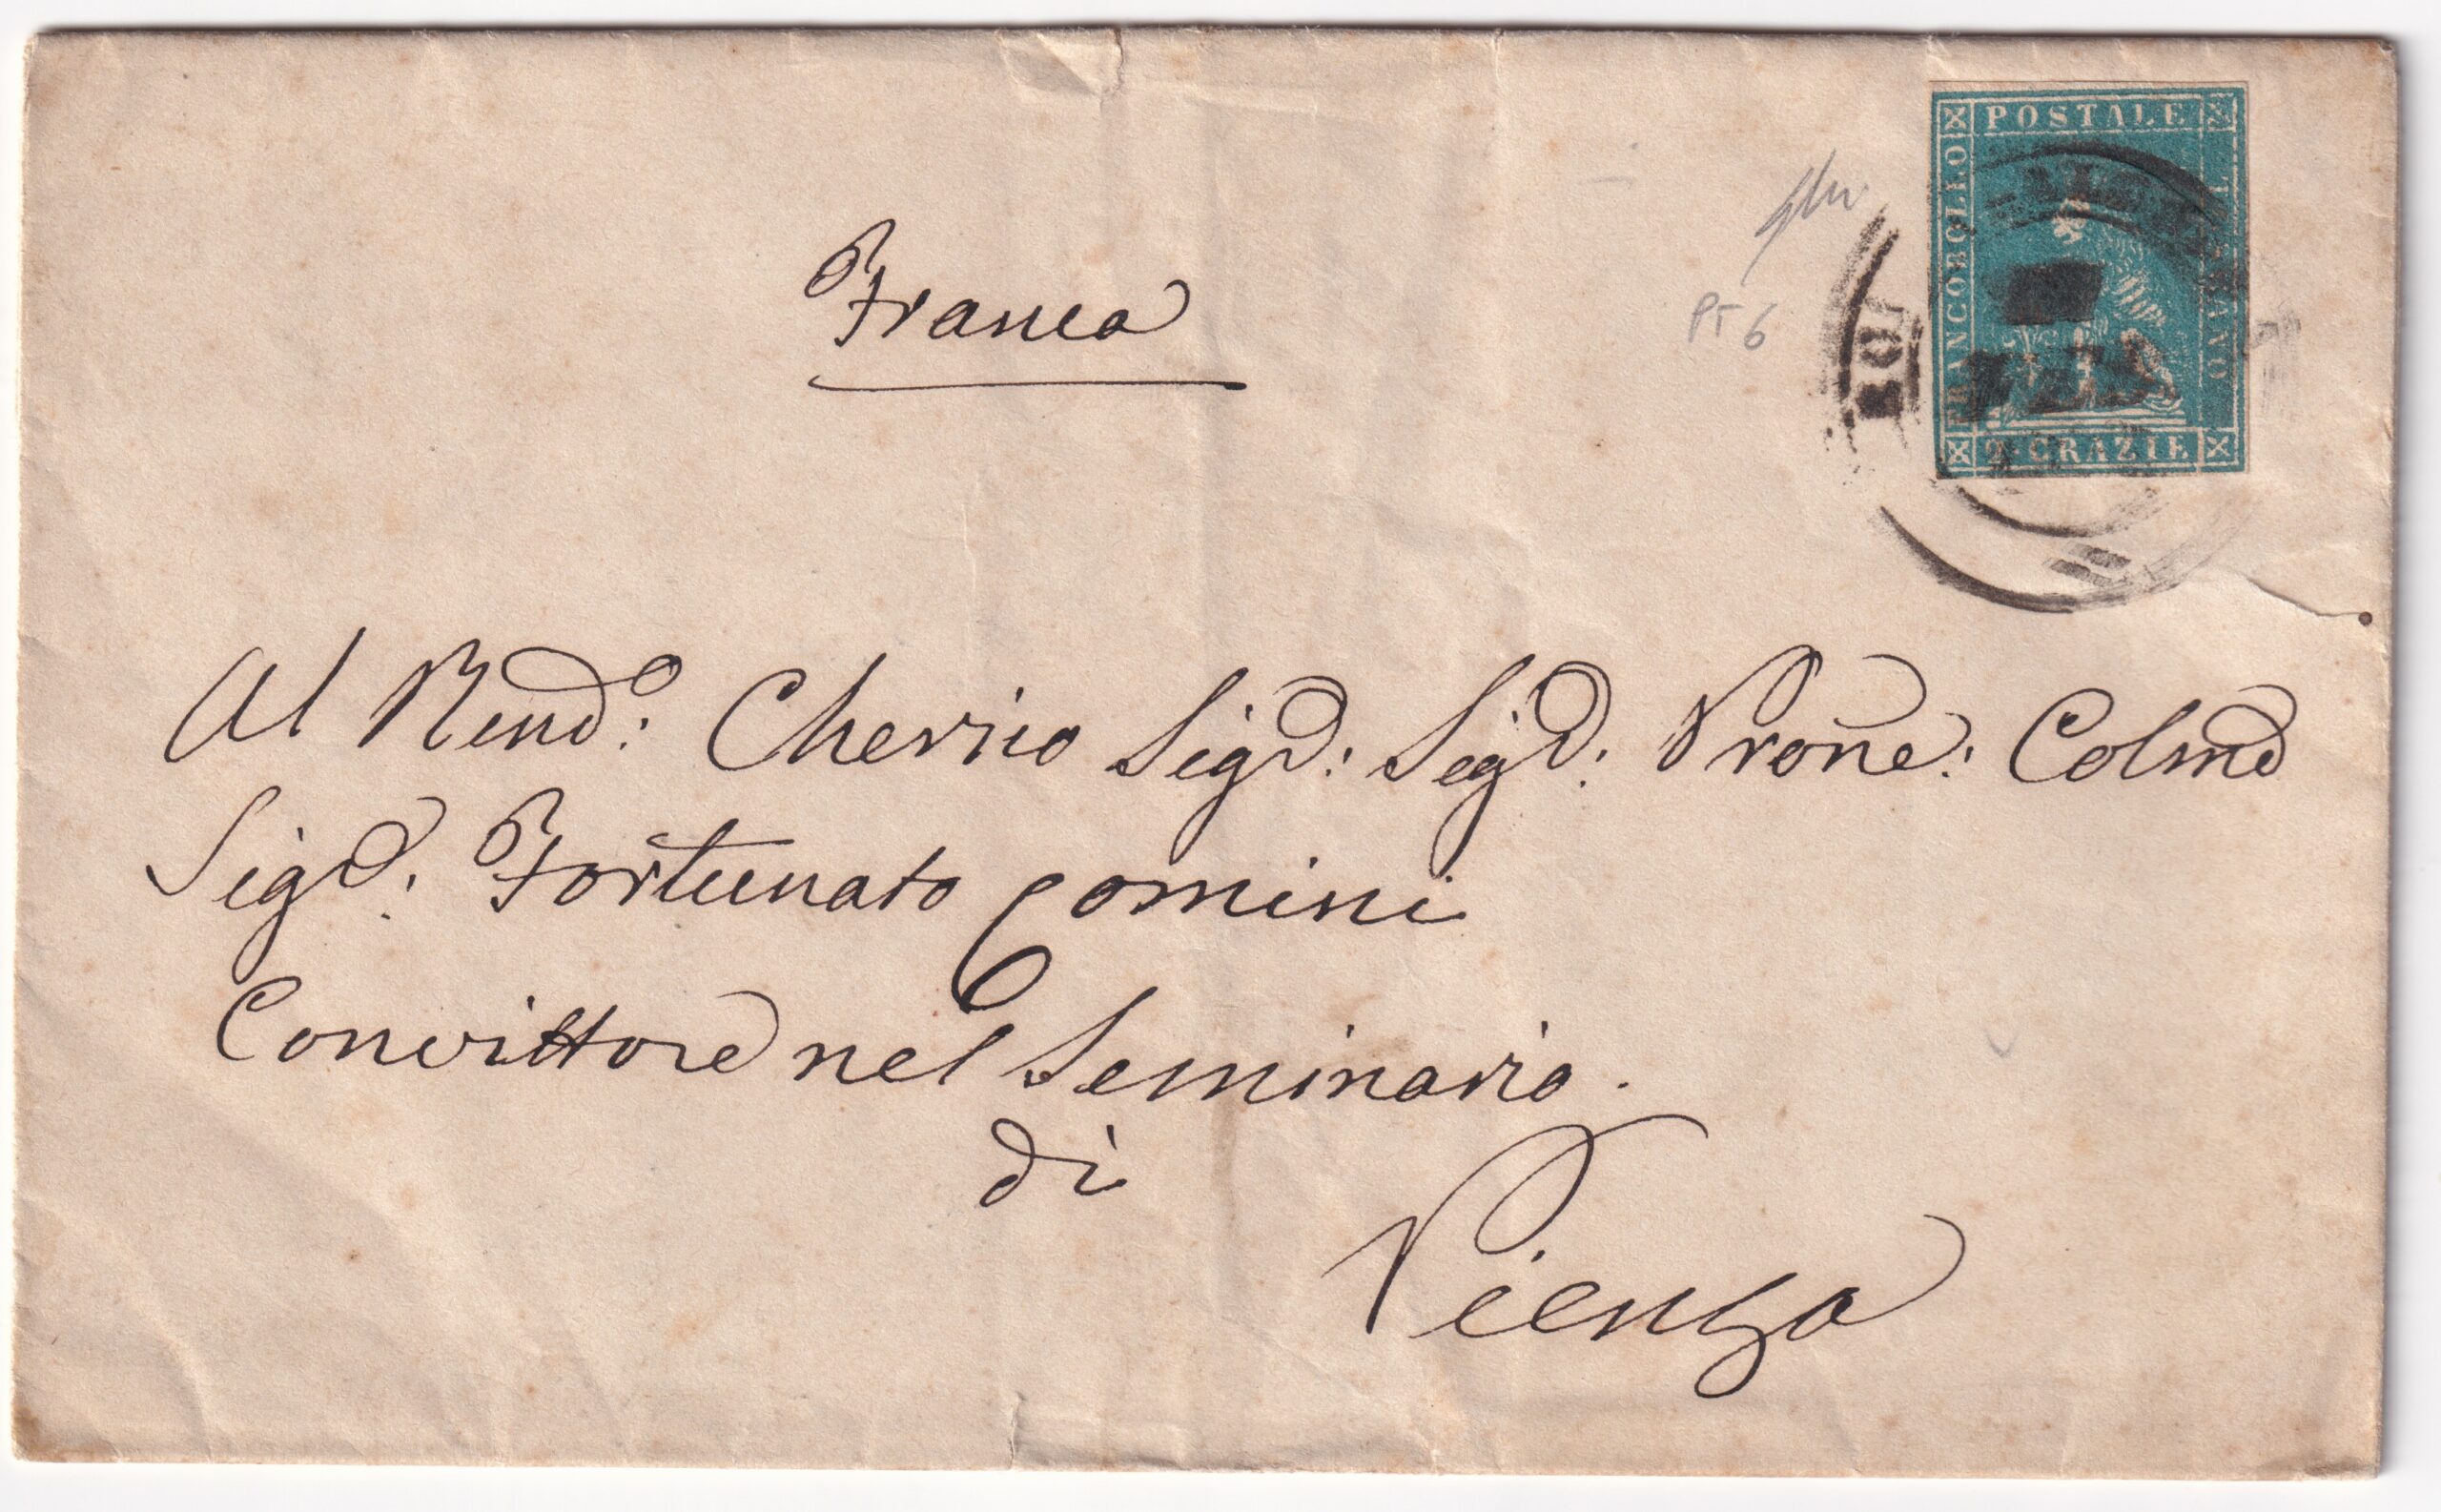 POSTALE
FRANCOBOLLO
TOSCANO
2 CRAZIE
PT 6
Franca
Al Rend.o: Cherico Sigr: Sigr: Prone: Colmo
Sigr: Fortunato Comini
Convittore nel Seminario.
di
Pienza